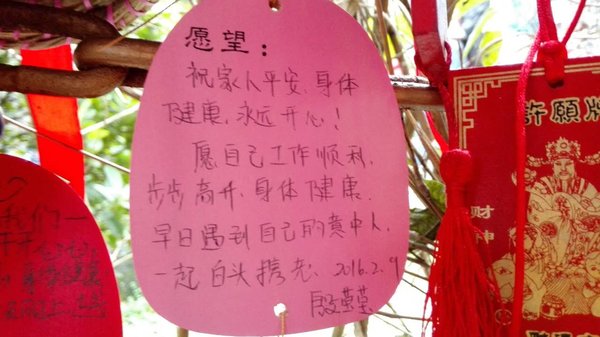 愿望：
祝家人平安、身体
健康，永远开心！
愿自己工作顺利，
步步高升，身体健康
早日遇到自己的真中人，
一起白头携老、2016.2.9
殷莹莹
我们一
許願牌
财神